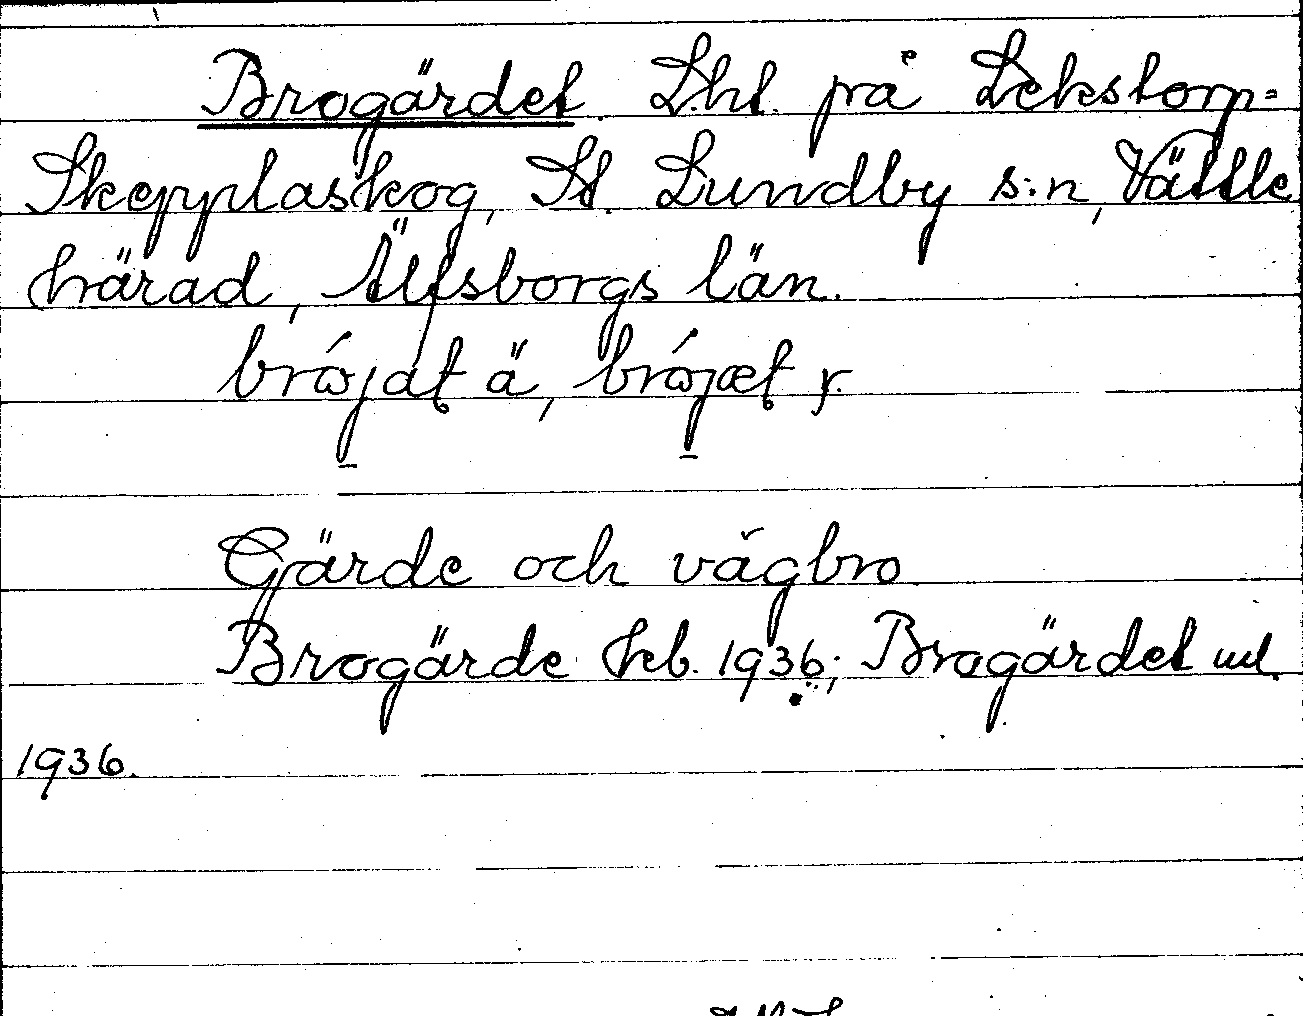 Brogärdet Lht. på Lekstorp-
Skepplaskog, St. Lundby s:n, Vättle
härad, Älfsborgs län.
brójat ä, brójæt y.
Gärde och vägbro
Brogärde hcb. 1936; Brogärdet ul
1936.